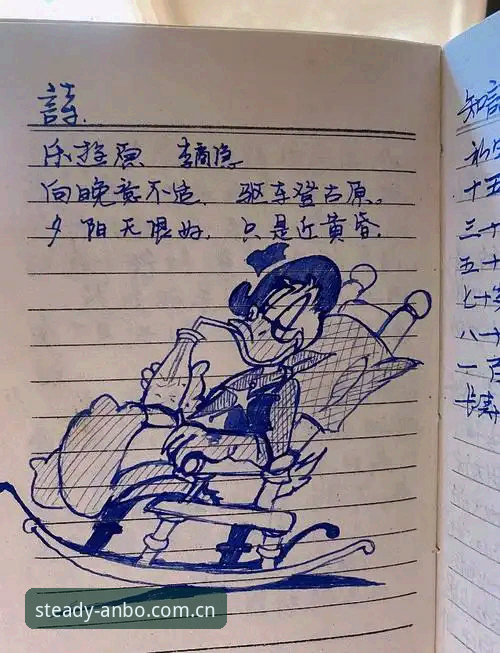 詩.
乐游原 李商隐
向晚意不适. 驱车登古原。
夕阳无限好. 只是近黄昏.
知
十五
三十
五十
七十
八十
一百
steady-anbo.com.cn